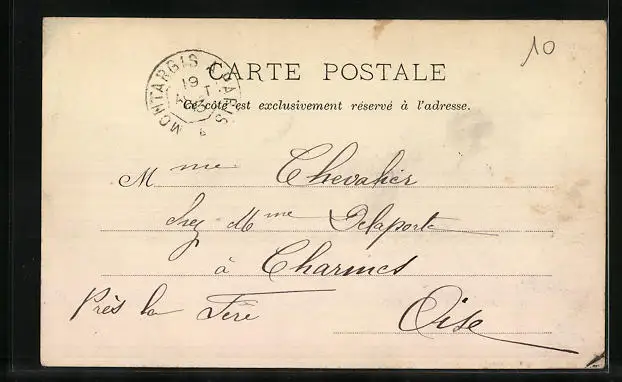 10
CARTE POSTALE
MONTARGIS A PARIS
19
Ce côté est exclusivement réservé à l'adresse.
Mme Chevalier
chez Mme Delaporte
à Charmes
Près la Fère
Oise